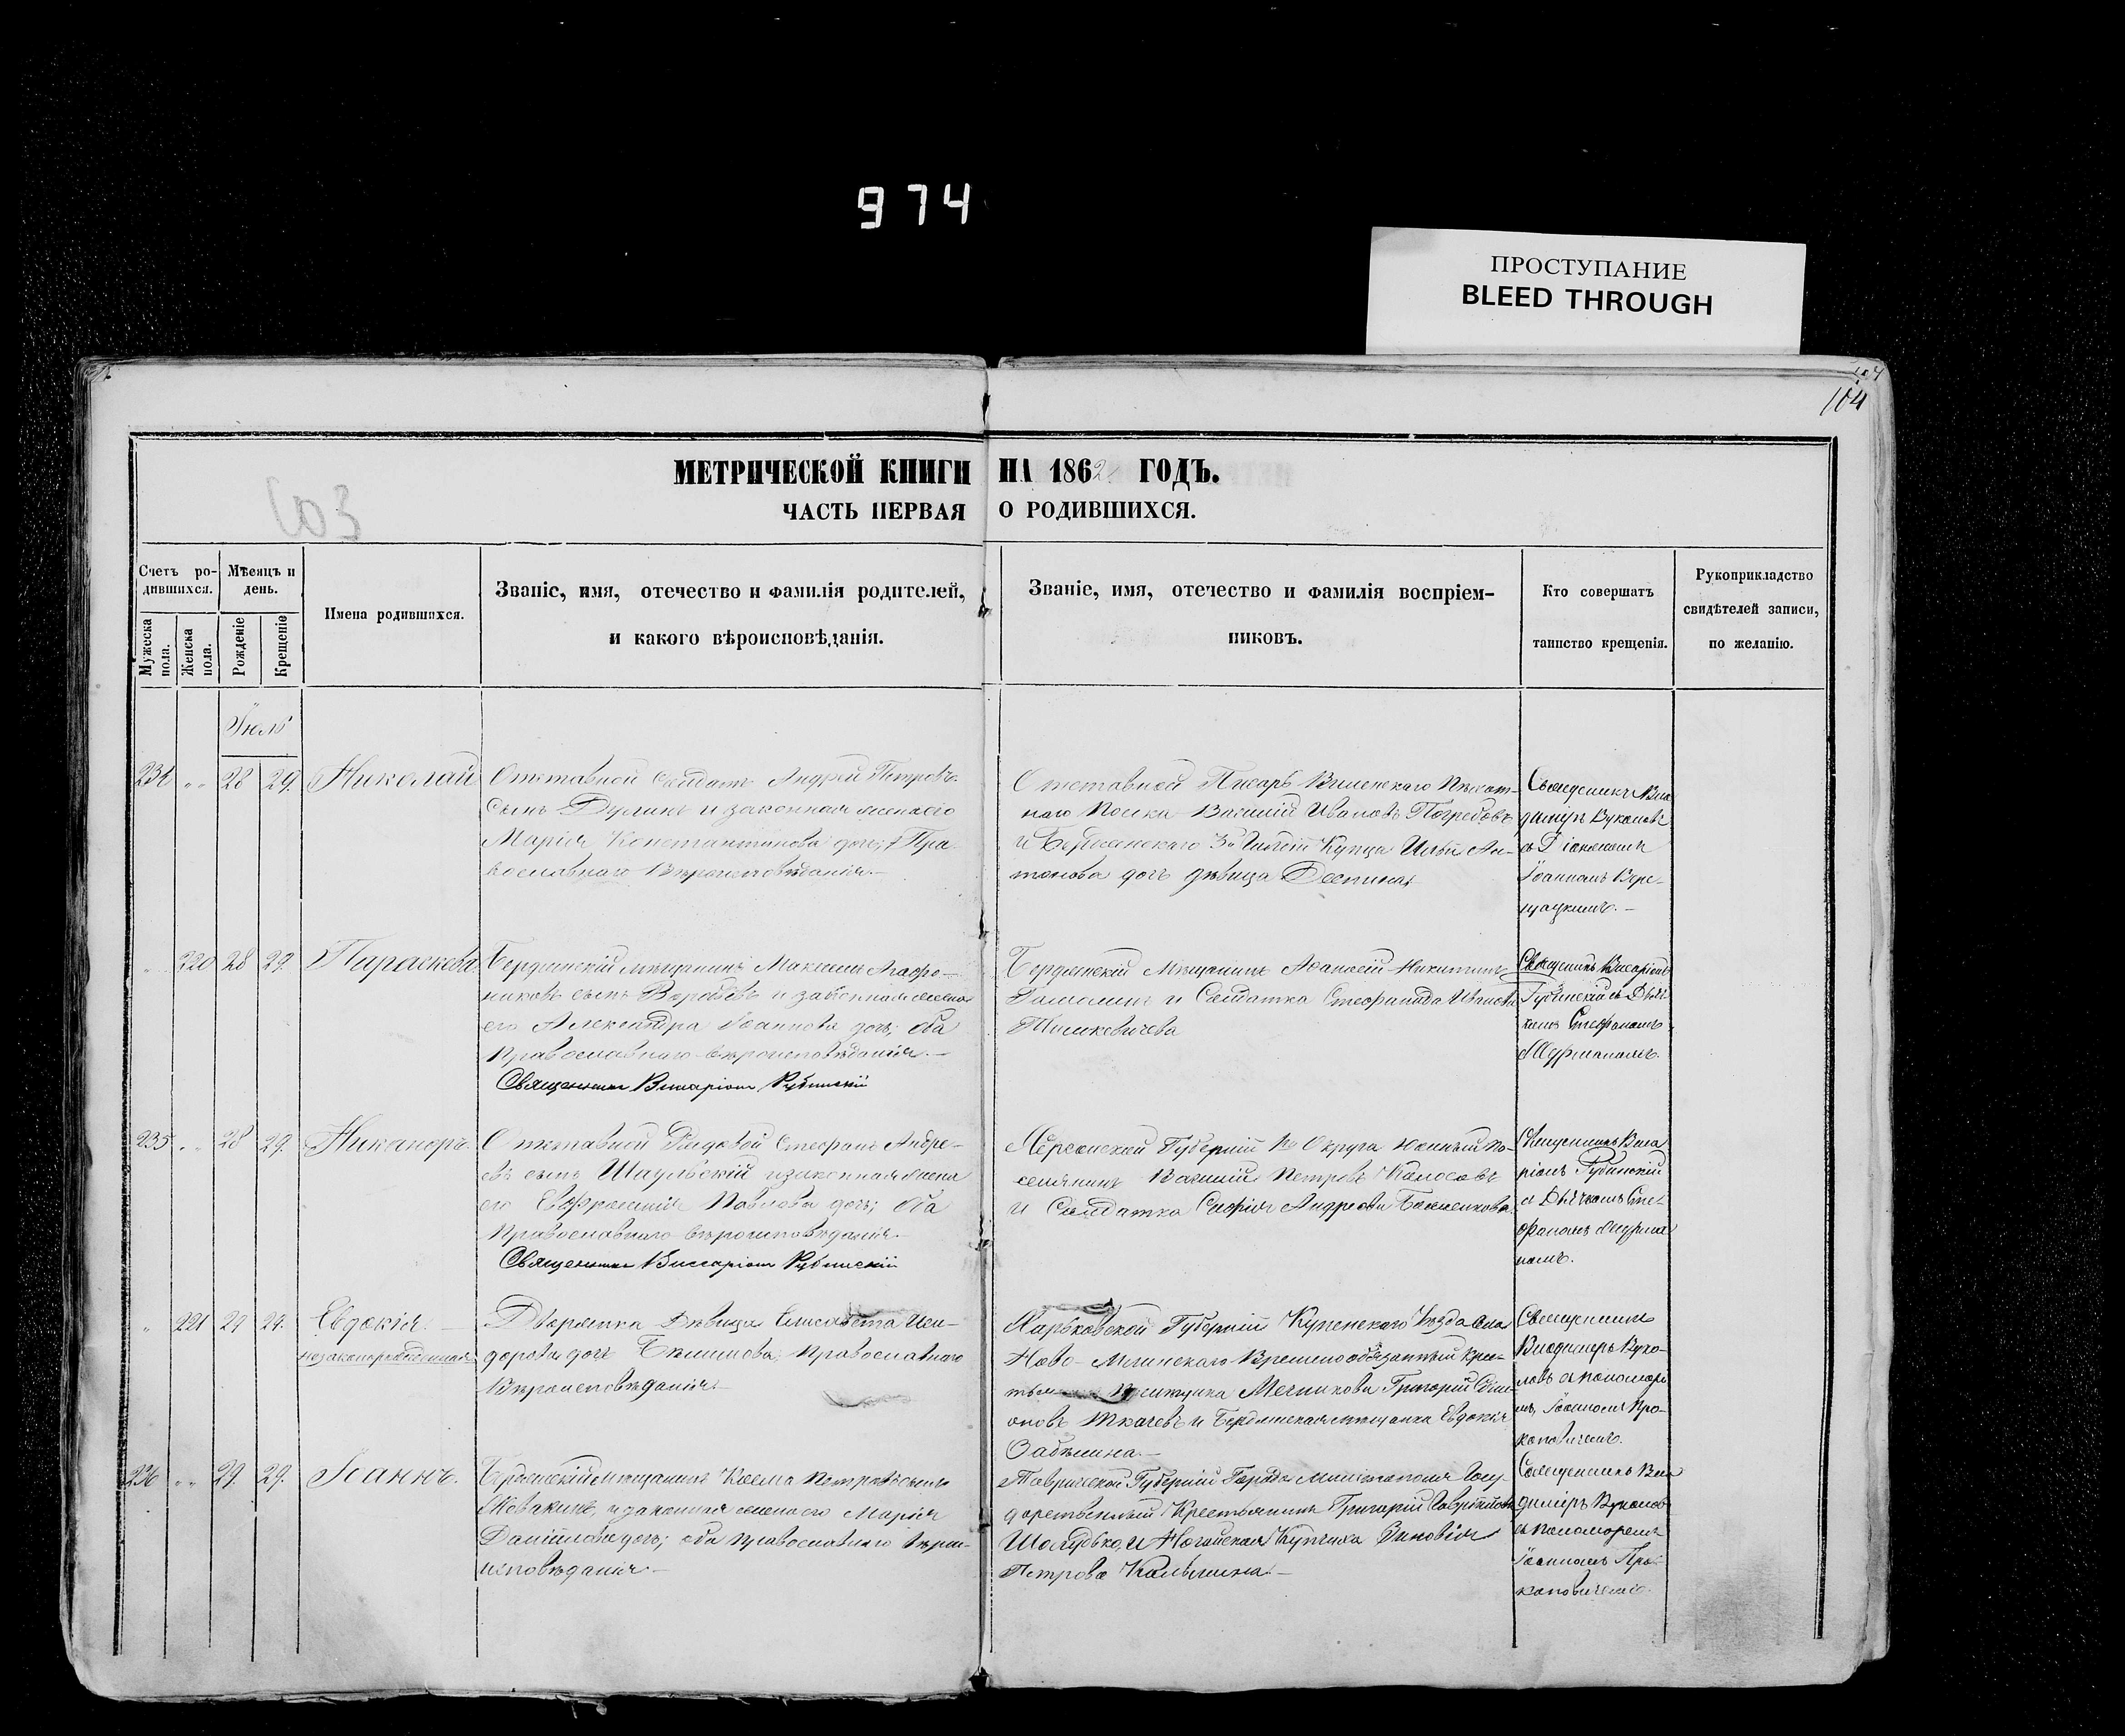 974
ПРОСТУПАНИЕ
BLEED THROUGH
104
МЕТРИЧЕСКОЙ КНИГИ НА 1862 ГОДЪ.
603
ЧАСТЬ ПЕРВАЯ О РОДИВШИХСЯ.
Счетъ родившихся.
Мѣсяцъ и день.
Мужеска пола.
Женска пола.
Рожденіе
Крещеніе
Имена родившихся.
Званіе, имя, отечество и фамилія родителей,
и какого вѣроисповѣданія.
Званіе, имя, отечество и фамилія воспріем-
никовъ.
Кто совершатъ
таинство крещенія.
Рукоприкладство
свидѣтелей записи,
по желанію.
Іюль
28 29. Николай
Отставной Солдатъ Андрей Петровъ
сынъ Дулинъ и законная жена его
Марія Константинова дочь; Пра-
вославнаго Вѣроисповѣданія.
Отставной Писарь Виленскаго Пѣхот-
наго Полка Василій Ивановъ
и Бердянскаго 3й Гильдіи Купца Ильи Ан-
тонова дочь дѣвица Деспина
Священникъ Вла
димиръ Вуколовъ
съ Діакономъ
Іоанномъ Вере-
щацкимъ.
220 28 29. Параскева
Бердянскій мѣщанинъ Максимъ Агафо-
никовъ сынъ и законная жена
его Александра Іоаннова дочь; оба
Православнаго вѣроисповѣданія.
Священникъ Виссаріонъ Рубинскій
Бердянскій Мѣщанинъ Афанасій Никитинъ
и Солдатка Стефанида Иванова
Тишкевичева
Священникъ Висаріонъ
Рубинскій съ Дьяч
комъ Стефаномъ
235 28 29. Никаноръ.
Отставной Рядовой Стефанъ Андре-
евъ сынъ Шаульскій и законная жена
его Евфросинія Павлова дочь; оба
Православнаго вѣроисповѣданія.
Священникъ Виссаріонъ Рубинскій
Херсонской Губерніи Округа Южный по-
селянинъ Василій Петровъ Колосовъ
и Солдатка Софія Андреева
Священникъ Виса
ріонъ Рубинскій
съ Дьячкомъ Сте-
фаномъ
221 29 29. Евдокія.
незаконорожденная
Дворянка Дѣвица Елисавета Иси-
дорова дочь Православнаго
Вѣроисповѣданія.
Харьковской Губерніи Купенскаго Уѣзда села
Ново-Млинскаго Временнообязанный кре-
Мечникова Григорій
оновъ Ткачевъ и Бердянская мѣщанка Евдокія
Забѣлина.
Священникъ
Владимиръ Вуко-
ловъ съ пономаре
мъ Іоанномъ Про-
коповичемъ.
236 29. 29. Іоаннъ.
Бердянскій Мѣщанинъ Косма Петровъ сынъ
и законная жена его Марія
Даніилова дочь; оба православнаго вѣро-
исповѣданія.
Таврической Губерніи Города Мелитополя Госу-
дарственный Крестьянинъ Григорій Гавріиловъ
Шолудько, и Ногайская Купчиха Зиновія
Петрова
Священникъ Вла
димиръ Вуколовъ
съ пономаремъ
Іоанномъ Про-
коповичемъ.